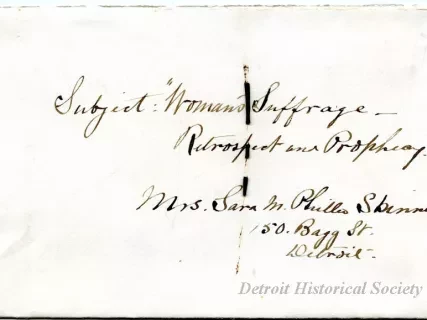 Subject: "Woman's Suffrage —
Retrospect and Prophecy.
Mrs. Sara M. Philleo Skinne
150. Bagg St.
Detroit.
Detroit Historical Society